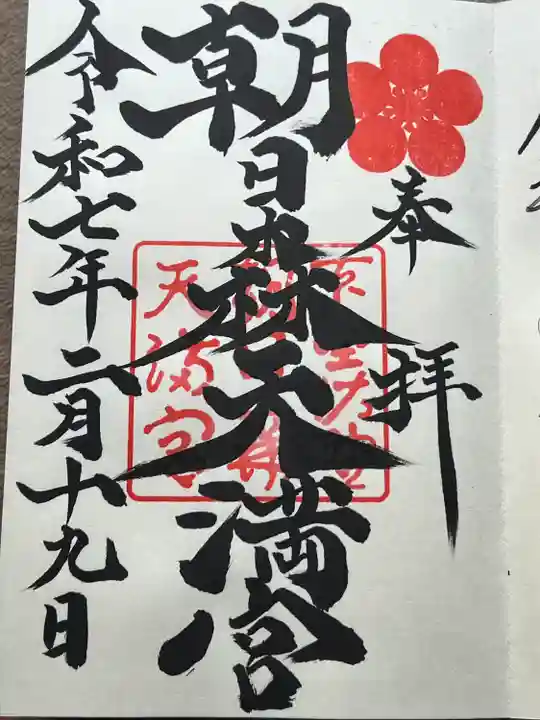 奉拝
朝日森天満宮
令和七年二月十九日
天満宮